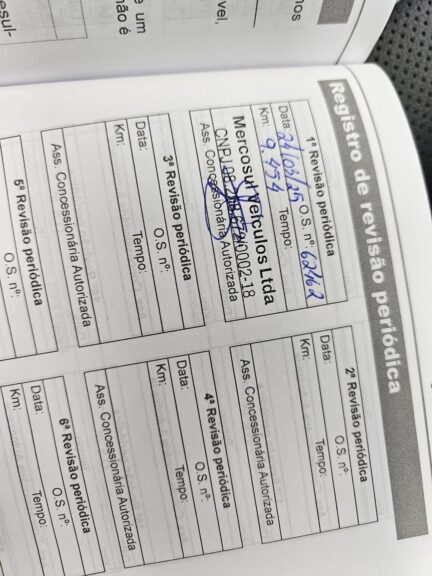 nos
vel,
e um
não é
esul-
Registro de revisão periódica
1ª Revisão periódica
Data: 24/03/25 O.S. nº: 62162
Km: 9.454 Tempo:
Mercosul Veículos Ltda
CNPJ /0002-18
Ass. Concessionária Autorizada
2ª Revisão periódica
Data: O.S. nº:
Km: Tempo:
Ass. Concessionária Autorizada
3ª Revisão periódica
Data: O.S. nº:
Km: Tempo:
Ass. Concessionária Autorizada
4ª Revisão periódica
Data: O.S. nº:
Km: Tempo:
Ass. Concessionária Autorizada
5ª Revisão periódica
O.S. nº:
6ª Revisão periódica
Data: O.S. nº:
Km: Tempo: